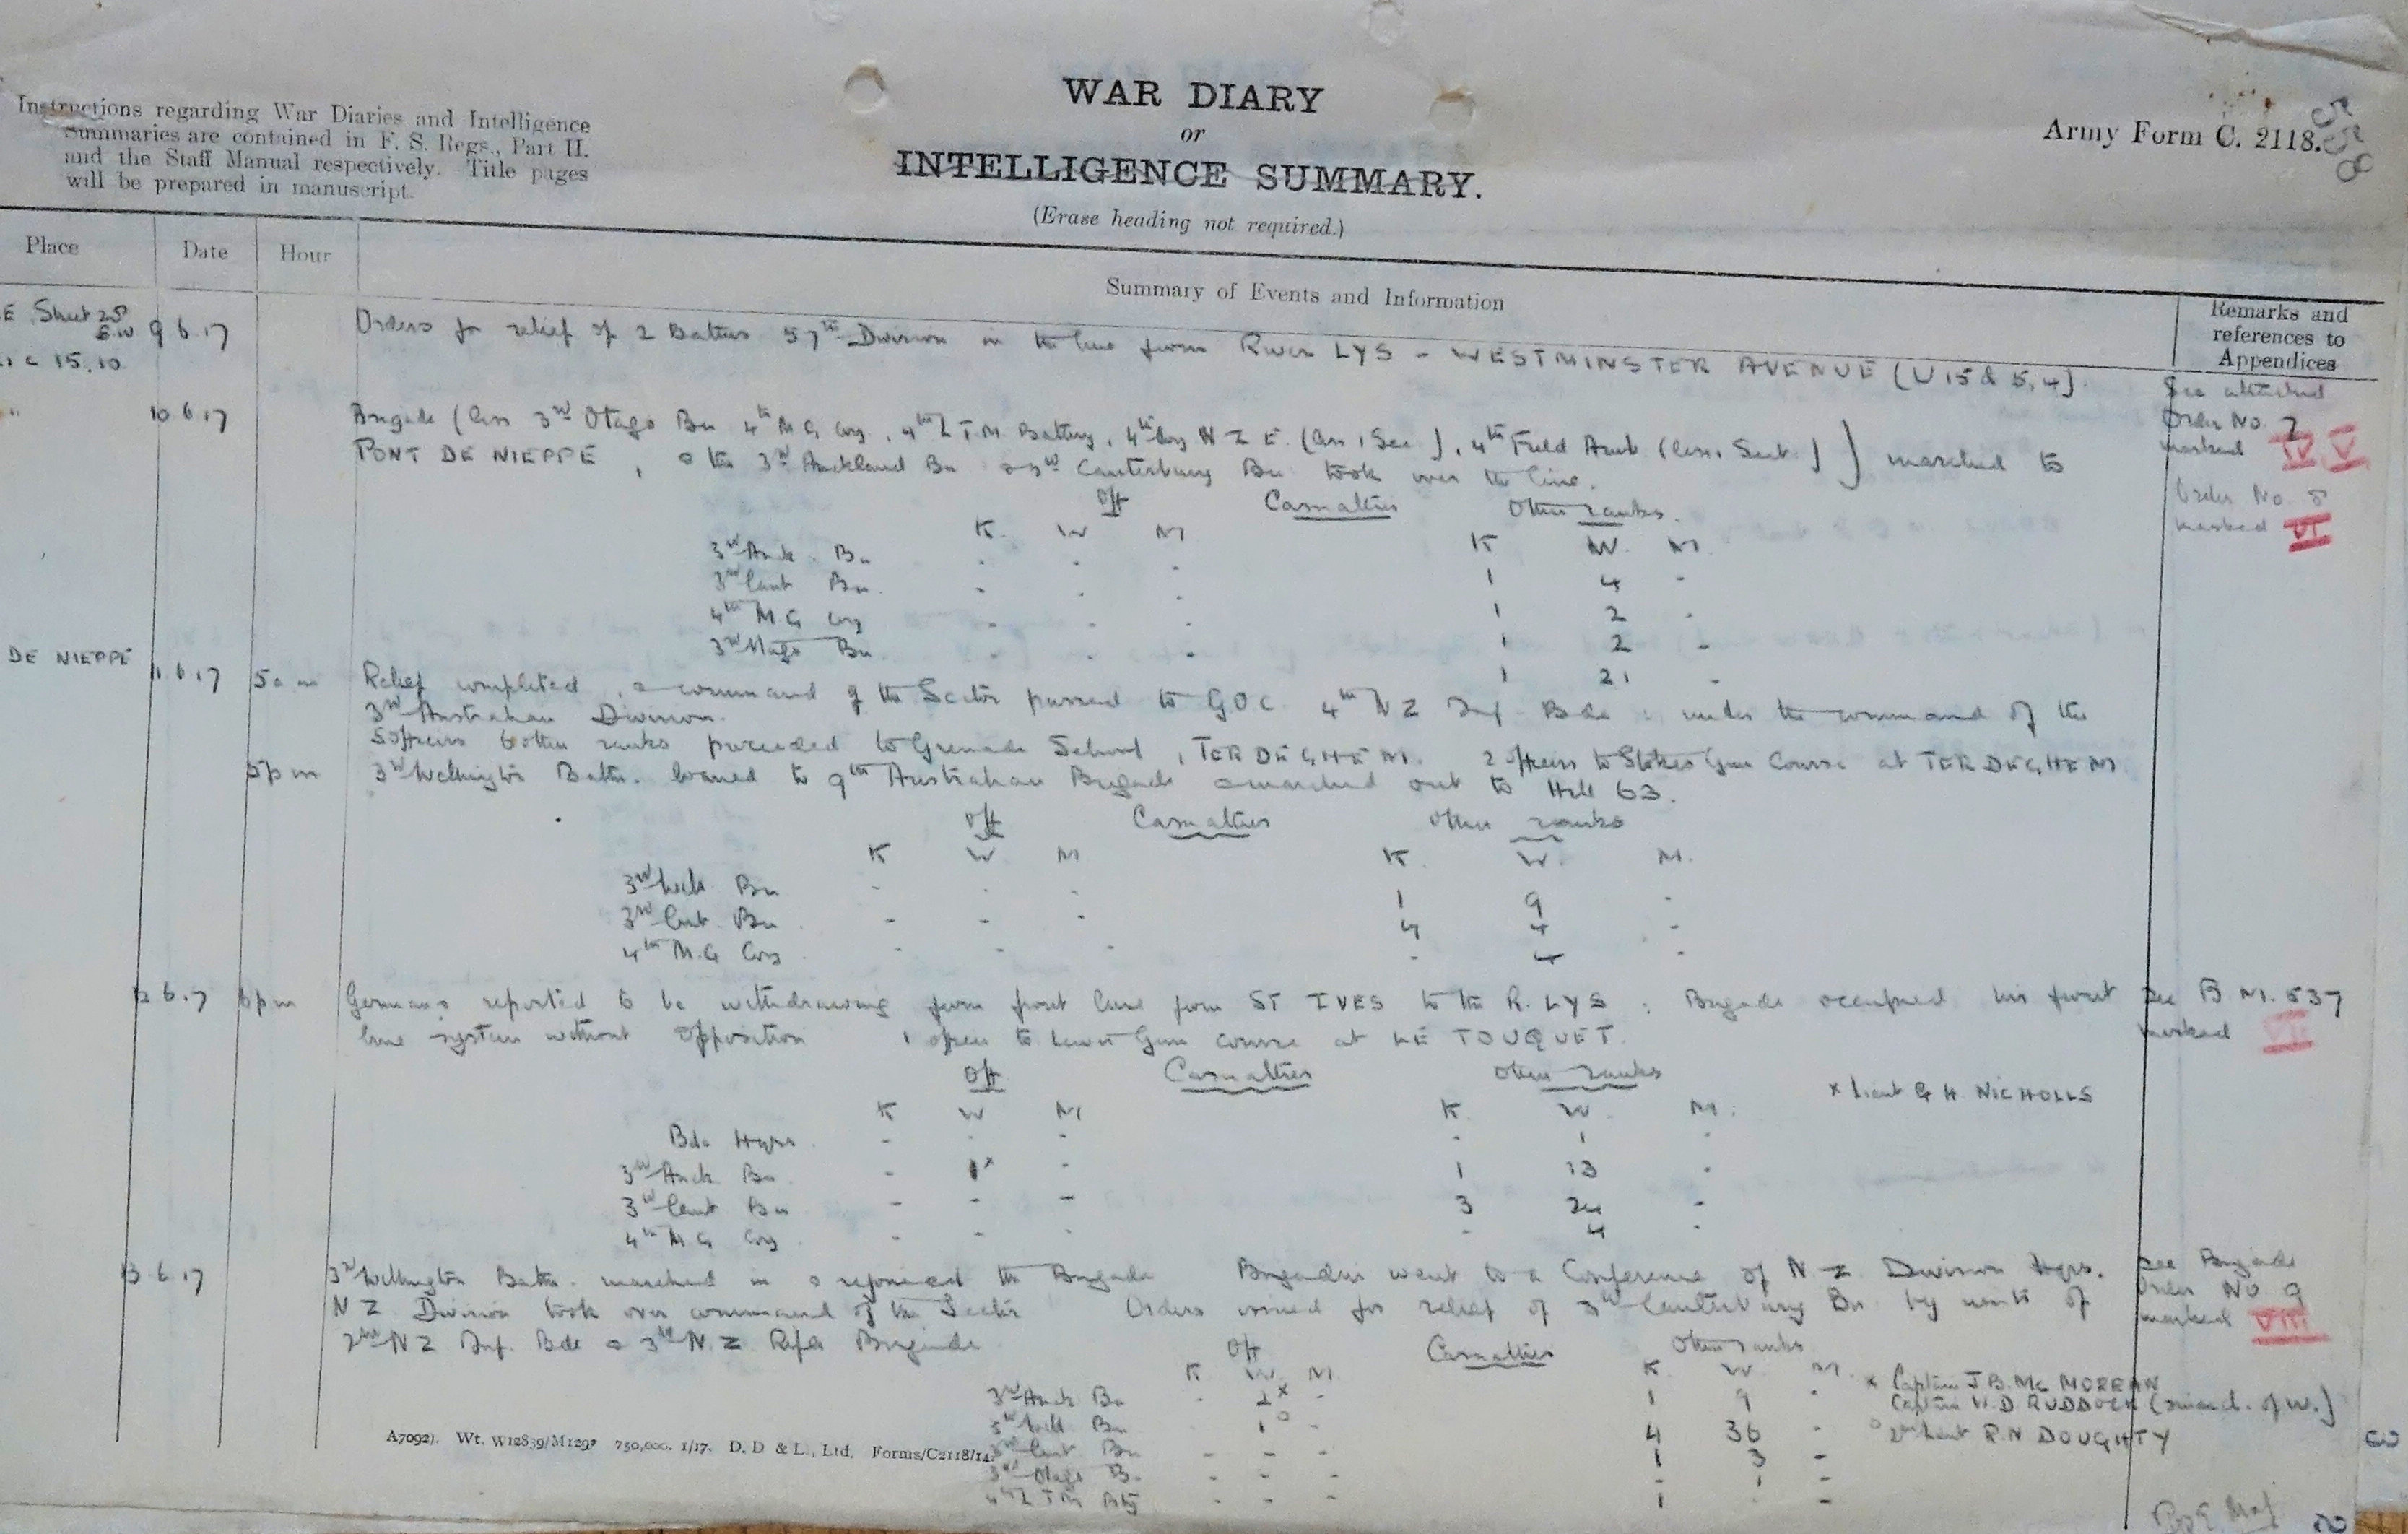 Instructions regarding War Diaries and Intelligence
Summaries are contained in F. S. Regs., Part II.
and the Staff Manual respectively. Title pages
will be prepared in manuscript.
WAR DIARY
or
INTELLIGENCE SUMMARY.
(Erase heading not required.)
Army Form C. 2118.
558
Place Date Hour
Summary of Events and Information
Remarks and
references to
Appendices
E Sheet 28
S.W 9 6.17 Orders for relief of 2 Battns 57th Division in the line from River LYS - WESTMINSTER AVENUE (U 15 & 5,4)
c 15.10
See attached
Order No. 7
marked IV V
" 10 6.17 Brigade (less 3rd Otago Bn 4th M G Coy, 4th L T M Battery, 4th Coy N Z E. (less 1 Sec), 4th Field Amb (less 1 Sect)) marched to
PONT DE NIEPPE, & the 3rd Auckland Bn & 3rd Canterbury Bn took over the line.
Order No. 8
marked VI
Off Casualties Other ranks.
K. W M K W. M.
3rd Auck. Bn . . . 1 4 -
3rd Cant Bn. - . . 1 2 .
4th M.G Coy . . . 1 2 -
3rd Otago Bn. . . . 1 21 .
DE NIEPPE 11 6.17 5 a m Relief completed, & command of the Sector passed to GOC 4th N Z Inf. Bde : under the command of the
3rd Australian Division.
5 officers 6 other ranks proceeded to Grenade School, TERDEGHEM. 2 officers to Stokes Gun Course at TERDEGHEM
5 p m 3rd Wellington Battn. loaned to 9th Australian Brigade & marched out to Hill 63.
Off Casualties Other ranks
K W M K. W. M.
3rd Auck Bn - . - 1 9 -
3rd Cant. Bn. - - - 4 4 -
4th M.G Coy. - - - - 4 -
12 6.17 6 p m Germans reported to be withdrawing from front line from ST IVES to the R. LYS : Brigade occupied his front
line system without opposition 1 officer to Lewis Gun course at LE TOUQUET.
See B M. 537
marked VII
Off Casualties Other ranks
K W M K. W. M.
x Lieut G H. NICHOLLS
Bde Hqrs. - . - - 1 -
3rd Auck. Bn. - 1x - 1 13 -
3rd Cant Bn - - - 3 24 -
4th M G Coy. - - - - 4 -
13 6 17 3rd Wellington Battn. marched in & rejoined the Brigade Brigadier went to a Conference of N Z Division Hqrs.
NZ Division took over command of the Sector Orders issued for relief of 3rd Canterbury Bn by units of
2nd NZ Inf. Bde & 3rd N.Z Rifle Brigade
See Brigade
Order No 9
marked VIII
Off Casualties Other ranks
K W. M. K W M.
3rd Auck Bn - 2x - 1 9 -
3rd Well Bn. 1o - 4 36 -
3rd Cant Bn - - - 1 3 -
3rd Otago B. - - - - 1 -
4th L T M Bty - - - 1 . -
x Captain J B. Mc MORRAN
Captain W. D RUDDOCK (since d. of W.)
o 2nd Lieut R. N DOUGHTY
A7092). Wt. W12839/M1297 750,000. 1/17. D. D & L., Ltd. Forms/C2118/14.